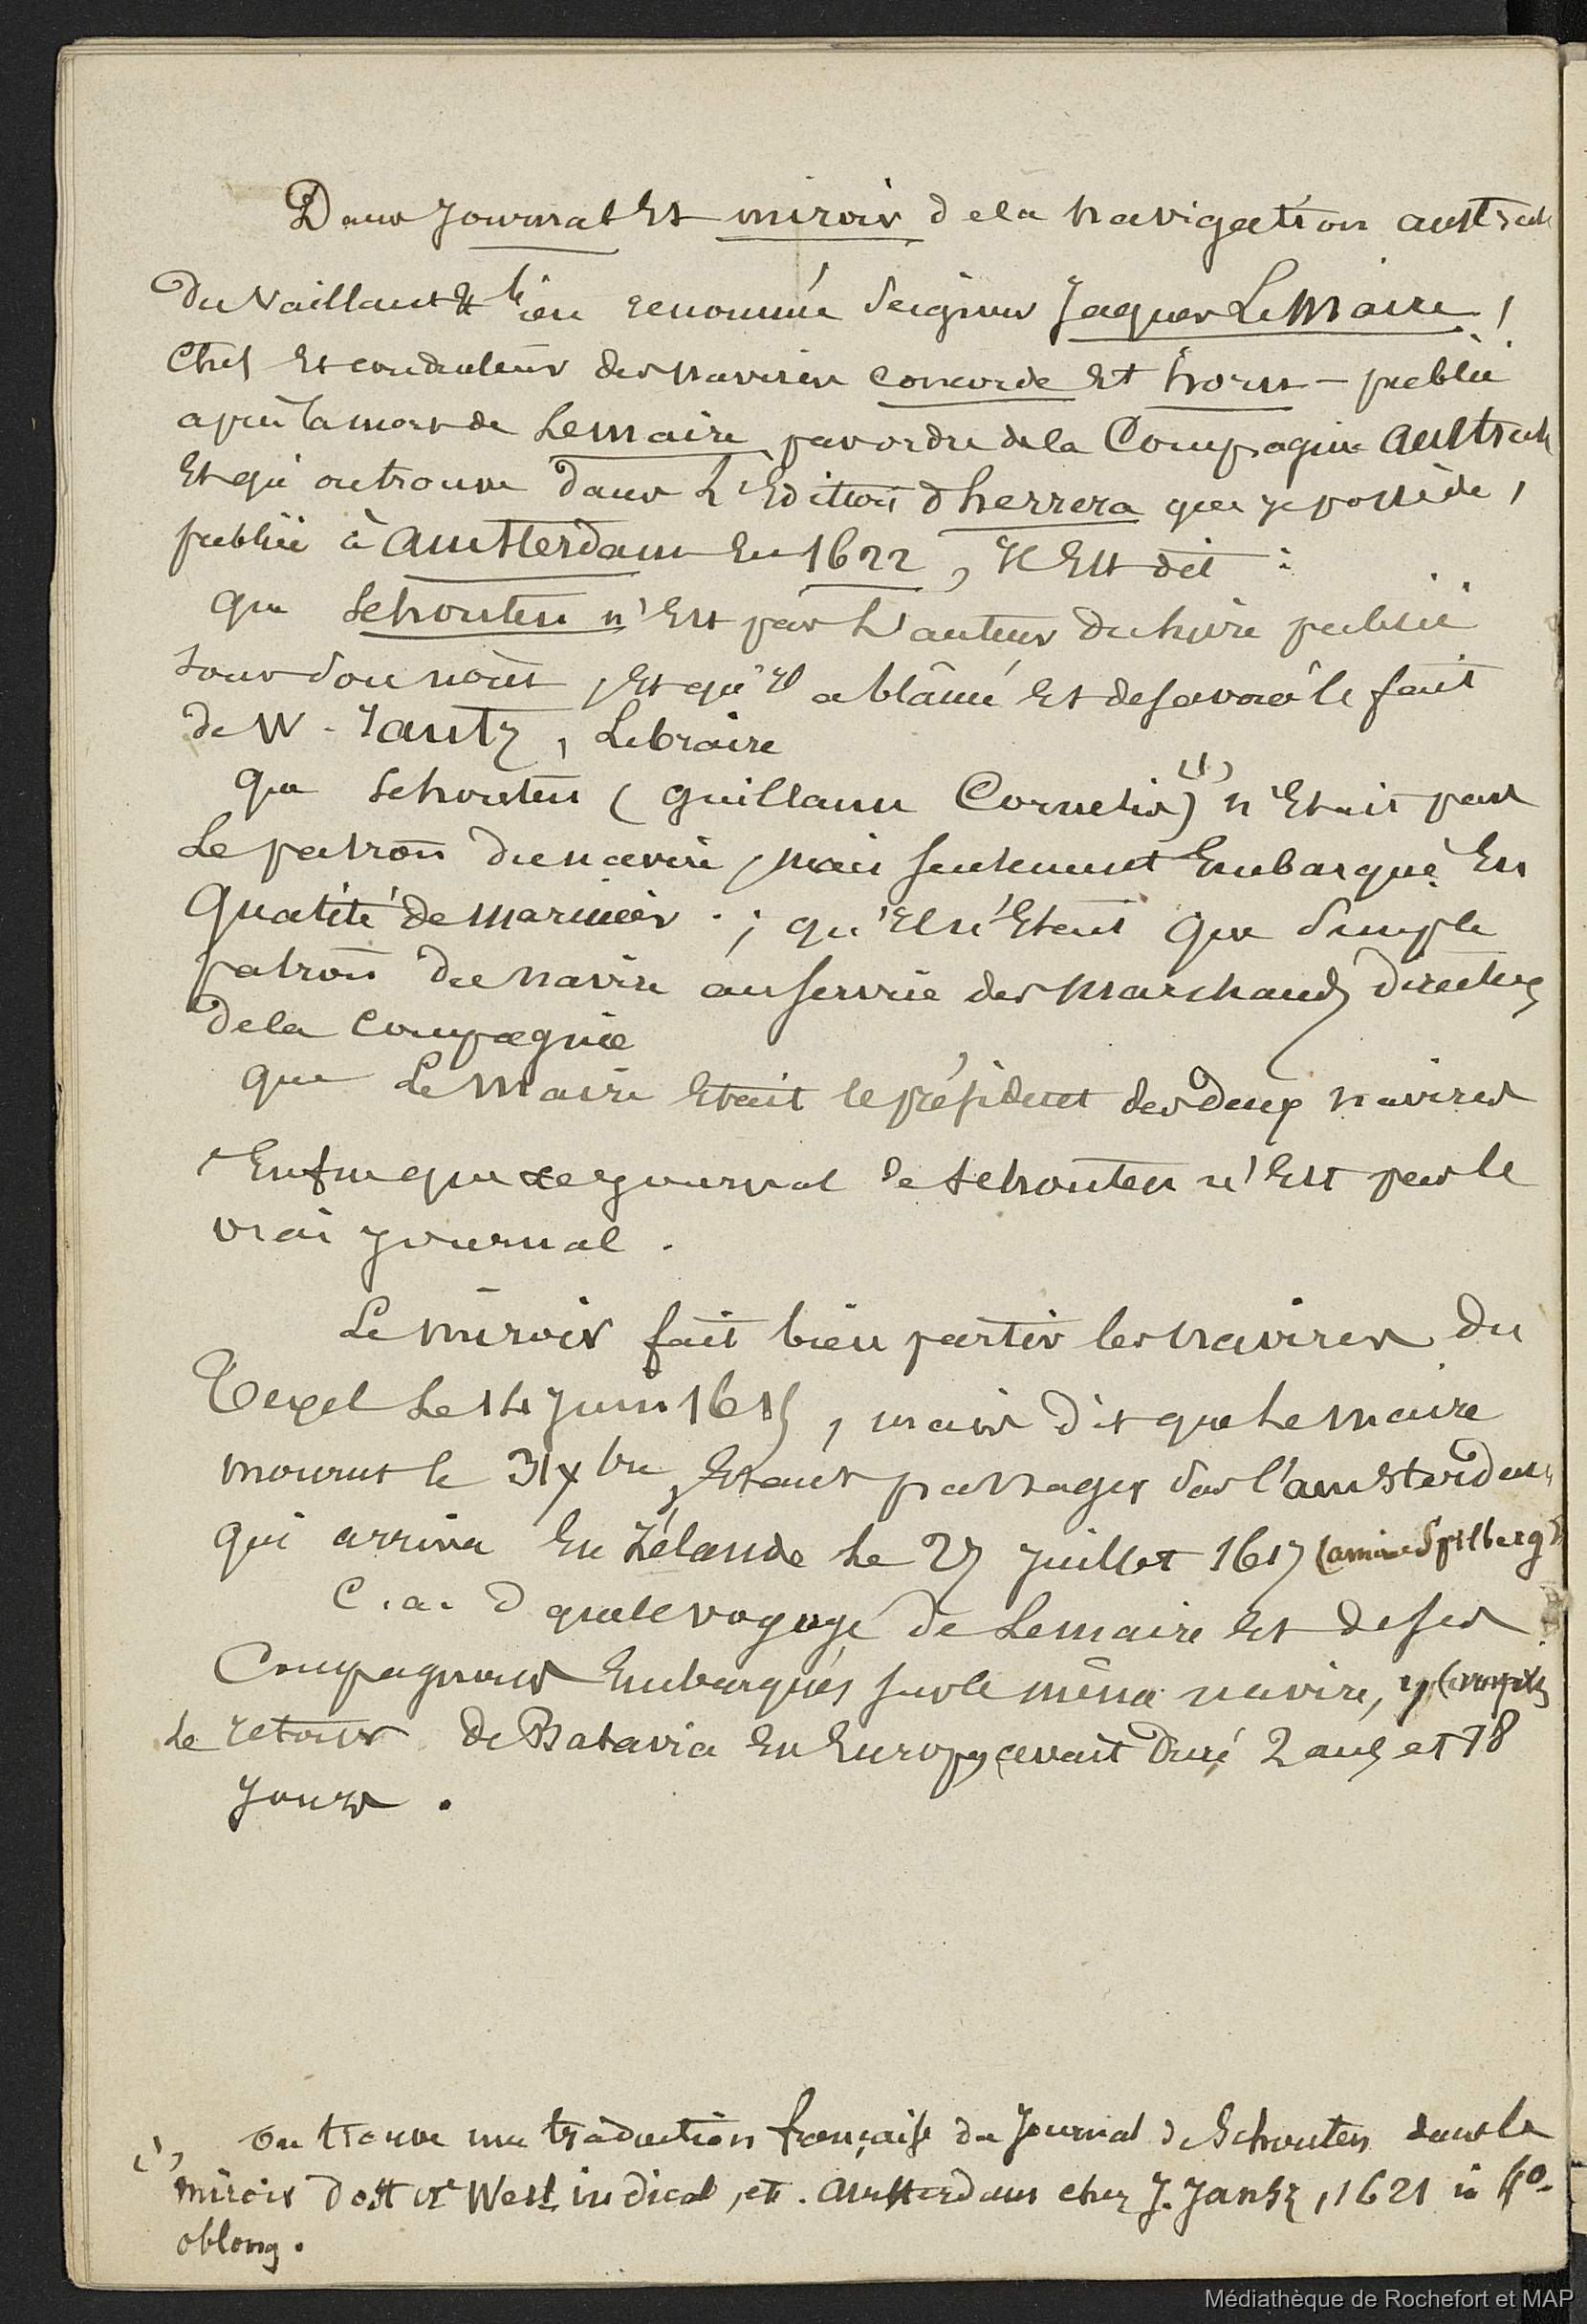 Dans Journal Et miroir de la navigation australe
du Vaillant & bien renommé Seigneur Jaques Le Maire,
Chef Et conducteur des navires Concorde Et horn – publié
après la mort de Lemaire par ordre de la Compagnie australe
Et qu'on trouve dans L'Edition d'herrera que je possède,
publiée à Amsterdam En 1622, Il Est dit :
que Schouten n'Est pas L'auteur du livre publié
sous son nom, Et qu'il a blâmé Et desavoué le fait
de W. Jantz, Libraire
que Schouten (Guillaume Cornelis) (1) n'Etait pas
Le patron du navire, mais seulement Embarqué En
Qualité de marinier ; qu'il n'Etait que Simple
patron du navire au service des Marchands directeurs
de la Compagnie
que Le Maire Etait le président des deux navires
Enfin que ce journal de Schouten n'Est pas le
vrai journal.
Le miroir fait bien partir les navires du
Texel Le 14 Juin 1615, mais dit que Lemaire
mourut le 31 Xbre, Etant passager sur l'amsterdam
qui arriva En Zélande Le 27 Juillet 1617 (amiral Spilberg)
C. a. d que le voyage de Lemaire Et de ses
Compagnons Embarqués sur le même navire, y compris
Le retour de Batavia En Europe, avait Duré 2 ans et 18
jours.
(1) on trouve une traduction française du Journal de Schouten dans le
miroir d'ost et West indical, etc. Amsterdam chez J. Jantz, 1621 in 4o
oblong.
Médiathèque de Rochefort et MAP